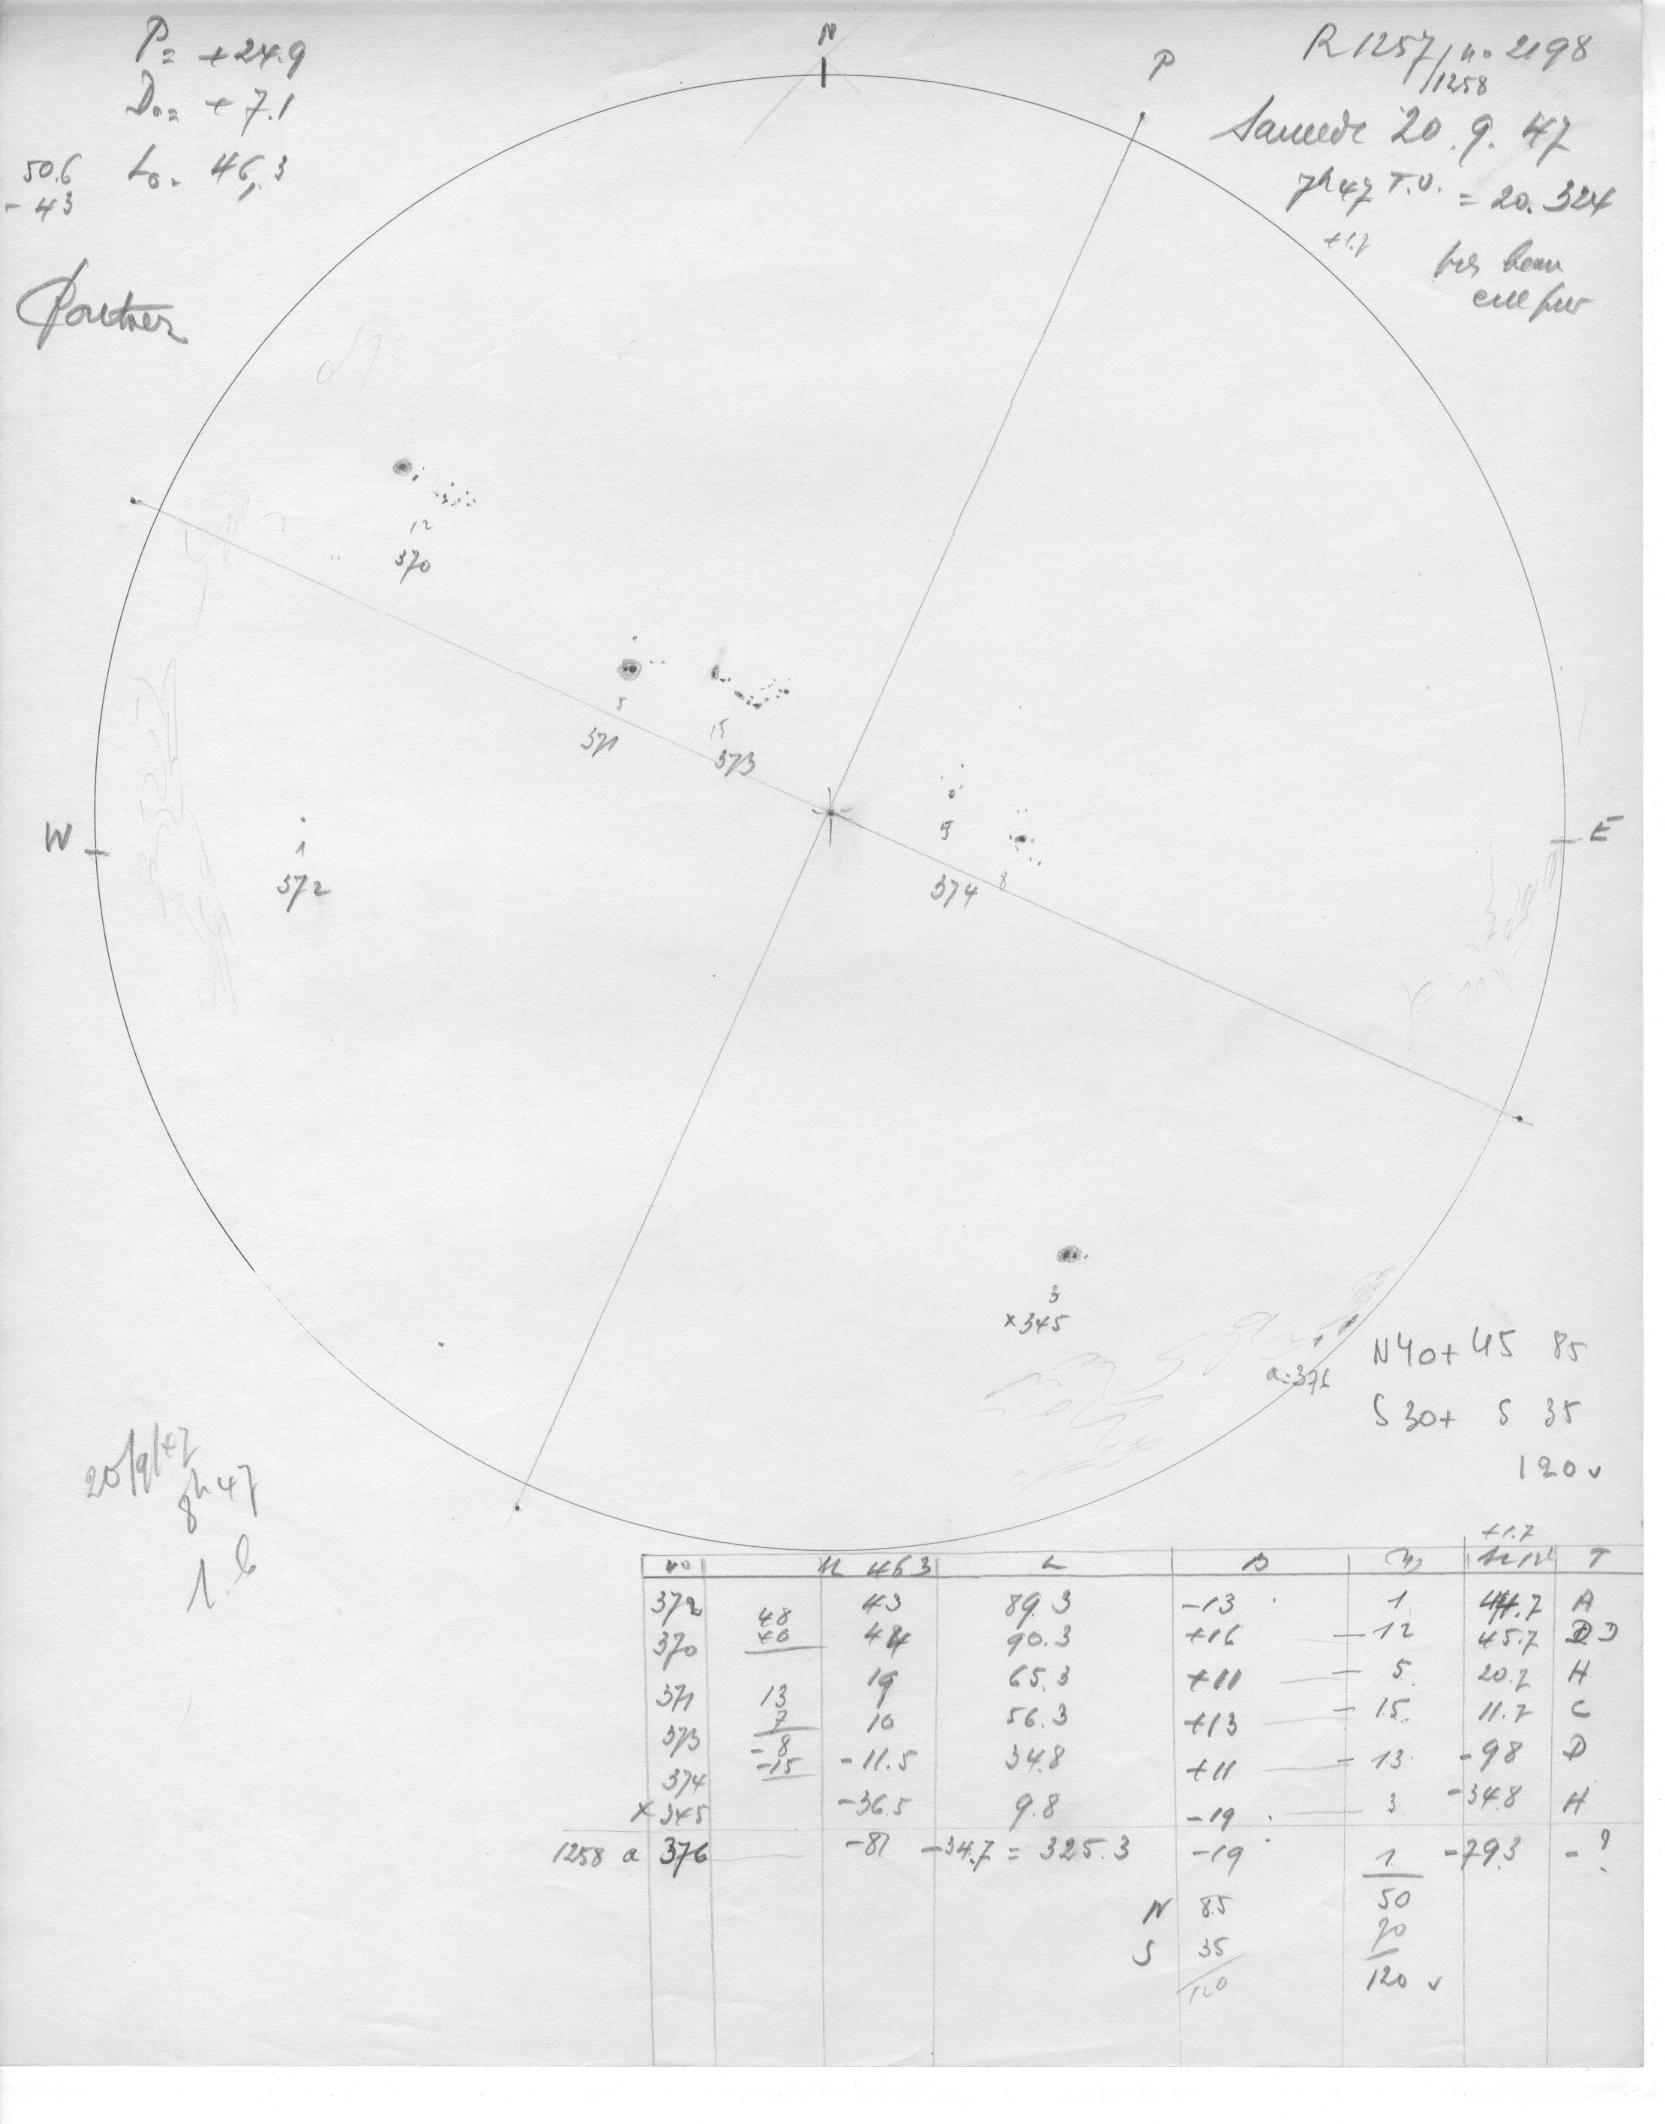 P= +24.9
D0= +7.1
L0= 46,3
50.6
-43
N
P
R1257/1258 no 2198
Samedi 20.9.47
7h47 T.U. = 20.324
+1.7
très beau
12
370
5
371
15
373
W
E
1
372
9
374 8
3
x345
1
a=376
N40+45 85
S30+ 5 35
120 v
20/9/47
8h47
+1.7
no M 463 L B T
372 43 89.3 -13 1 44.7 A
370 48 40 44 90.3 +16 12 45.7 D
371 19 65.3 +11 5 20.7 H
373 13 7 10 56.3 +13 15 11.7 C
374 -8 -15 -11.5 34.8 +11 13 -98 D
x345 -36.5 9.8 -19 3 -34.8 H
1258 a 376 -81 -34.7 = 325.3 -19 1 -79.3 - ?
N 85 50
S 35 70
120 120 v